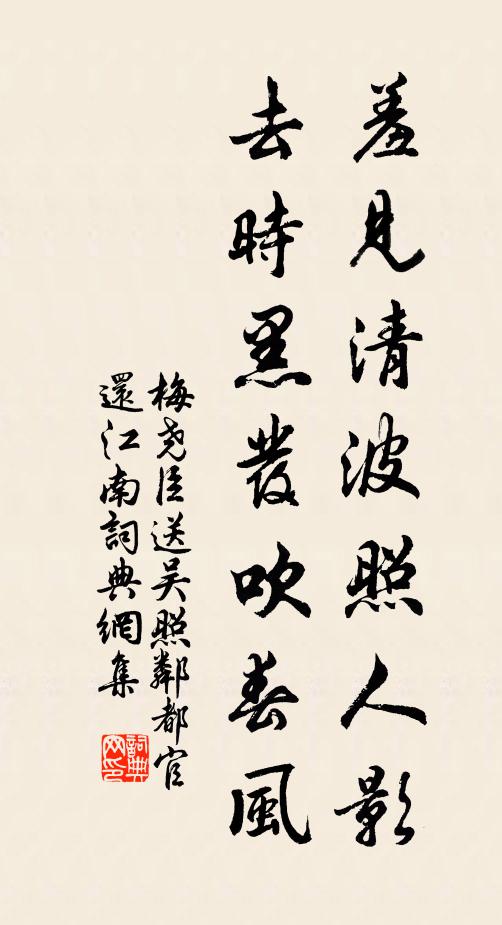 羞見清波照人影
去時黑發吹春風
梅堯臣送吳照鄰都官
還江南詞典網集
詞典網印